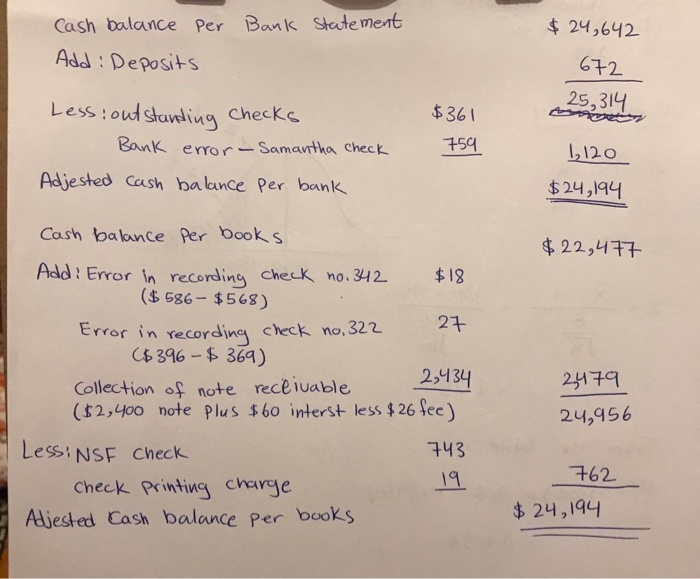 Cash balance Per Bank Statement $ 24,642
Add : Deposits 672
25,314
Less : outstanding checks $361
Bank error - Samantha check 759 1,120
Adjested Cash balance Per bank $24,194
Cash balance Per books $ 22,477
Add : Error in recording check no. 342 $18
($ 586 - $568)
Error in recording check no. 322 27
($396 - $ 369)
Collection of note receivable 2,434 2,479
($2,400 note plus $60 interst less $26 fee) 24,956
Less : NSF Check 743
Check Printing charge 19 762
Adjested Cash balance per books $ 24,194